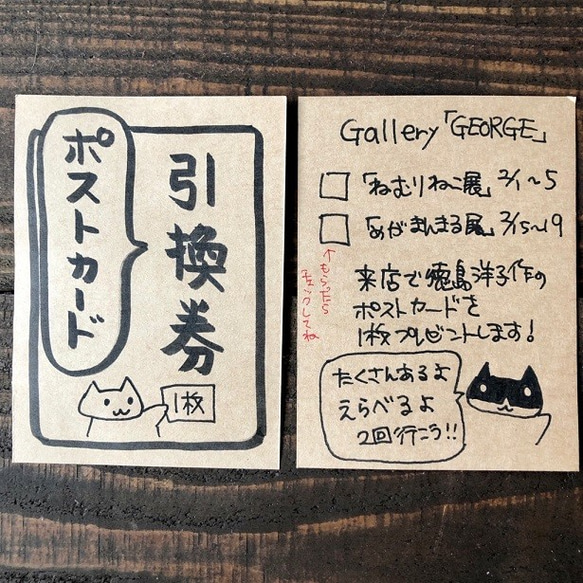 ポストカード
引換券
1枚
Gallery「GEORGE」
□「ねむりねこ展」2/1〜5
□「めがまんまる展」2/15〜19
↑もらったら
チェックしてね
来店で徳島洋子作の
ポストカードを
1枚プレゼントします!
たくさんあるよ
えらべるよ
2回行こう!!